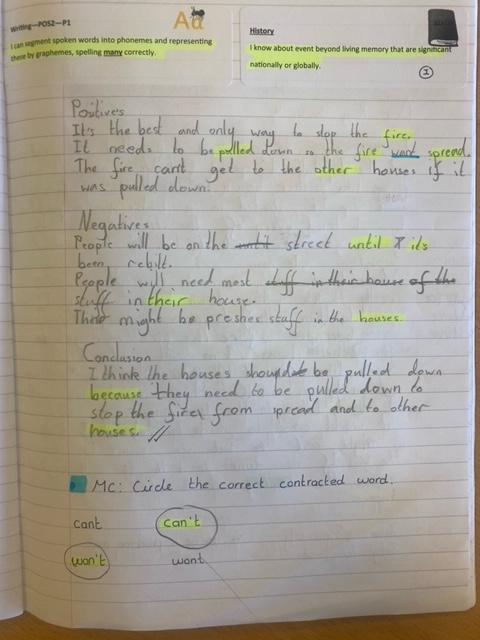 Writing—POS2—P1
Aa
I can segment spoken words into phonemes and representing
these by graphemes, spelling many correctly.
History
I know about event beyond living memory that are significant
nationally or globally.
1
Positives
It's the best and only way to stop the fire.
It needs to be pulled down so the fire wont spread.
The fire can't get to the other houses if it
was pulled down.
Negatives
People will be on the until street until its
been rebilt.
People will need most stuff in their house of the
stuff in their house.
might be preshes stuff in the houses.
Conclusion
I think the houses should be pulled down
because they need to be pulled down to
stop the fire from spread and to other
houses.
MC: Circle the correct contracted word.
cant can't
won't wont